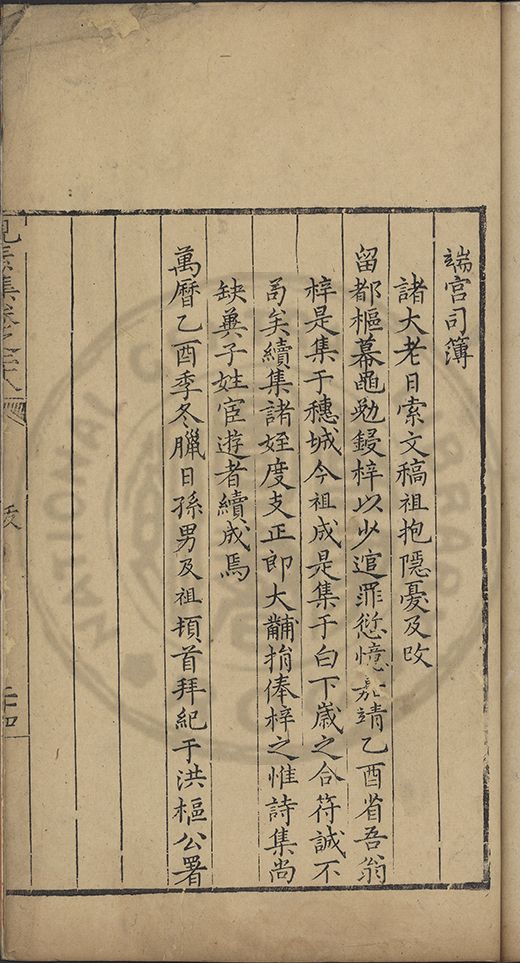 端宫司簿
諸大老日索文稿祖抱隱憂及改
留都樞幕黽勉鋟梓以少逭罪愆憶嘉靖乙酉省吾翁
梓是集于穗城今祖成是集于白下嵗之合符誠不
苟矣續集諸姪度支正郎大黼捐俸梓之惟詩集尚
缺兾子姓宦遊者續成焉
萬曆乙酉季冬臘日孫男及祖頓首拜紀于洪樞公署
見素集卷之二十八
後
二十四